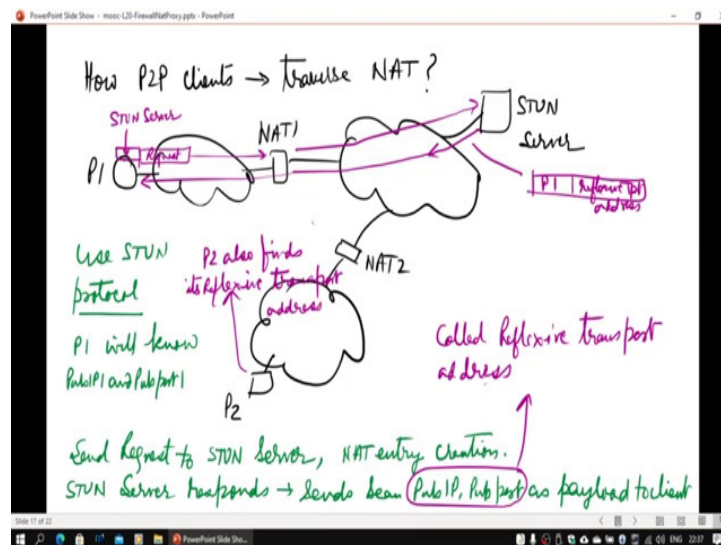 PowerPoint Slide Show - mooc-L20-FirewallNatProxy.pptx - PowerPoint
How P2P clients → traverse NAT?
STUN Server
Request
P1
NAT1
STUN
Server
P1 | Reflexive tpt
address
Use STUN
protocol
P1 will know
PubIP1 and Pubport1
P2 also finds
its Reflexive transport
address
NAT2
P2
Called Reflexive transport
address
Send Request to STUN Server, NAT entry creation.
STUN Server responds → Sends seen PubIP, Pub port as payload to client
Slide 17 of 22
PowerPoint Slide Sho...
ENG 22:37